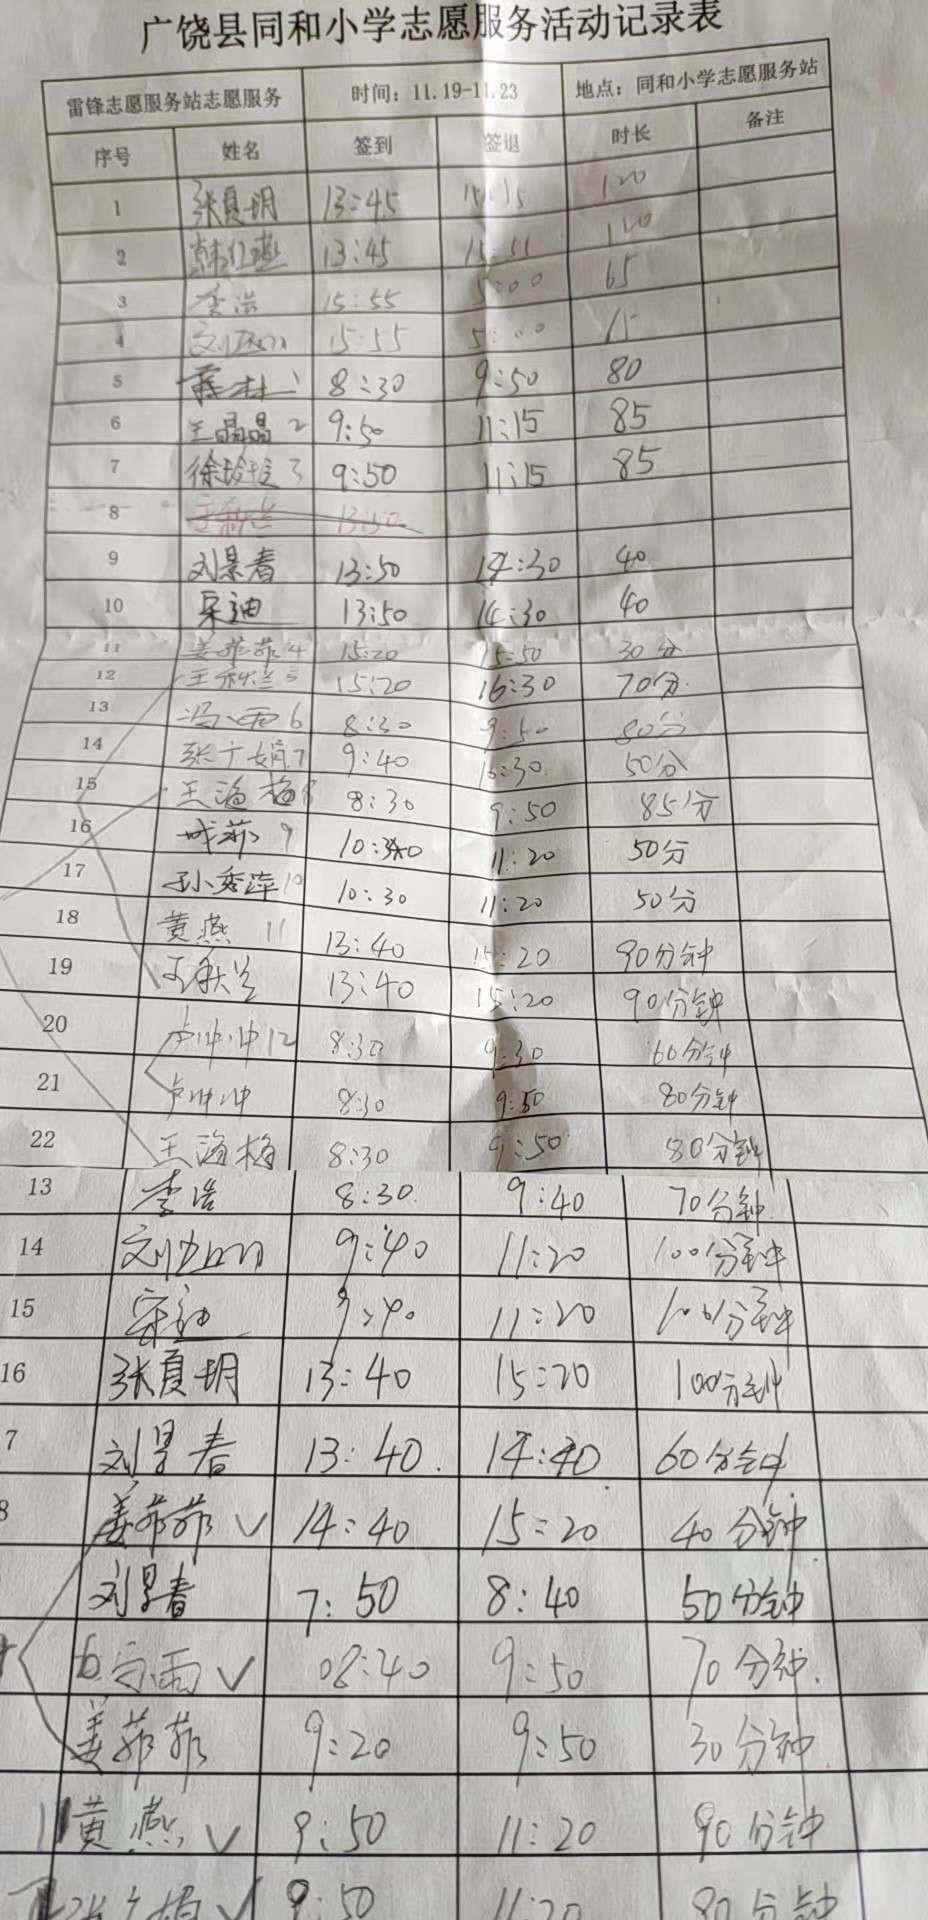 广饶县同和小学志愿服务活动记录表
雷锋志愿服务站志愿服务 时间：11.19-11.23 地点：同和小学志愿服务站
序号 姓名 签到 签退 时长 备注
1 张夏玥 13:45 15:15 120
2 13:45 120
3 李浩 15:55 5:00 65
15:55 5:00
5 8:30 9:50 80
6 王晶晶 2 9:50 11:15 85
7 徐 3 9:50 11:15 85
8 王秋兰 13:50
9 刘景春 13:50 14:30 40
10 宋迪 13:50 14:30 40
11 姜菲菲 4 15:20 15:50 30分
12 王秋兰 5 15:20 16:30 70分
13 雨 6 8:30 9:50 80分
14 张广娟 7 9:40 10:30 50分
15 王海梅 8 8:30 9:50 85分
16 9 11:20 50分
17 孙秀萍 10 10:30 11:20 50分
18 黄燕 11 13:40 15:20 90分钟
19 王秋兰 13:40 15:20 90分钟
20 卢冲冲 12 8:30 9:30 60分钟
21 卢冲冲 8:30 9:50 80分钟
22 王海梅 8:30 9:50 80分钟
13 李浩 8:30 9:40 70分钟
14 刘 9:40 11:20 100分钟
15 宋迪 9:40 11:20 100分钟
16 张夏玥 13:40 15:20 100分钟
7 刘景春 13:40 14:40 60分钟
8 姜菲菲 √ 14:40 15:20 40分钟
刘景春 7:50 8:40 50分钟
雨 √ 08:40 9:50 70分钟
姜菲菲 9:20 9:50 30分钟
11 黄燕 √ 9:50 11:20 90分钟
张广娟 √ 9:50 11:20 分钟